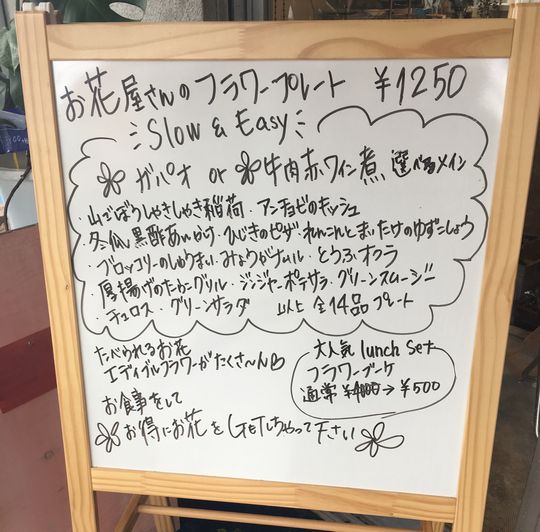 お花屋さんのフラワープレート ¥1250
Slow & Easy
ガパオ or 牛肉赤ワイン煮 選べるメイン
・山ごぼうしゃきしゃき稲荷・アンチョビのキッシュ
・冬瓜黒酢あんかけ・ひじきのピザ・れんこんとまいたけのゆずこしょう
・ブロッコリーのしゅうまい・みょうがナムル・とうふオクラ
・厚揚げのたかこグリル・ジンジャーポテサラ・グリーンスムージー
・チュロス・グリーンサラダ 以上 全14品プレート
たべられるお花
エディブルフラワーがたくさ〜ん♡
大人気 lunch set
フラワーブーケ
通常 ¥1000→¥500
お食事をして
お得にお花をGETしちゃって下さい